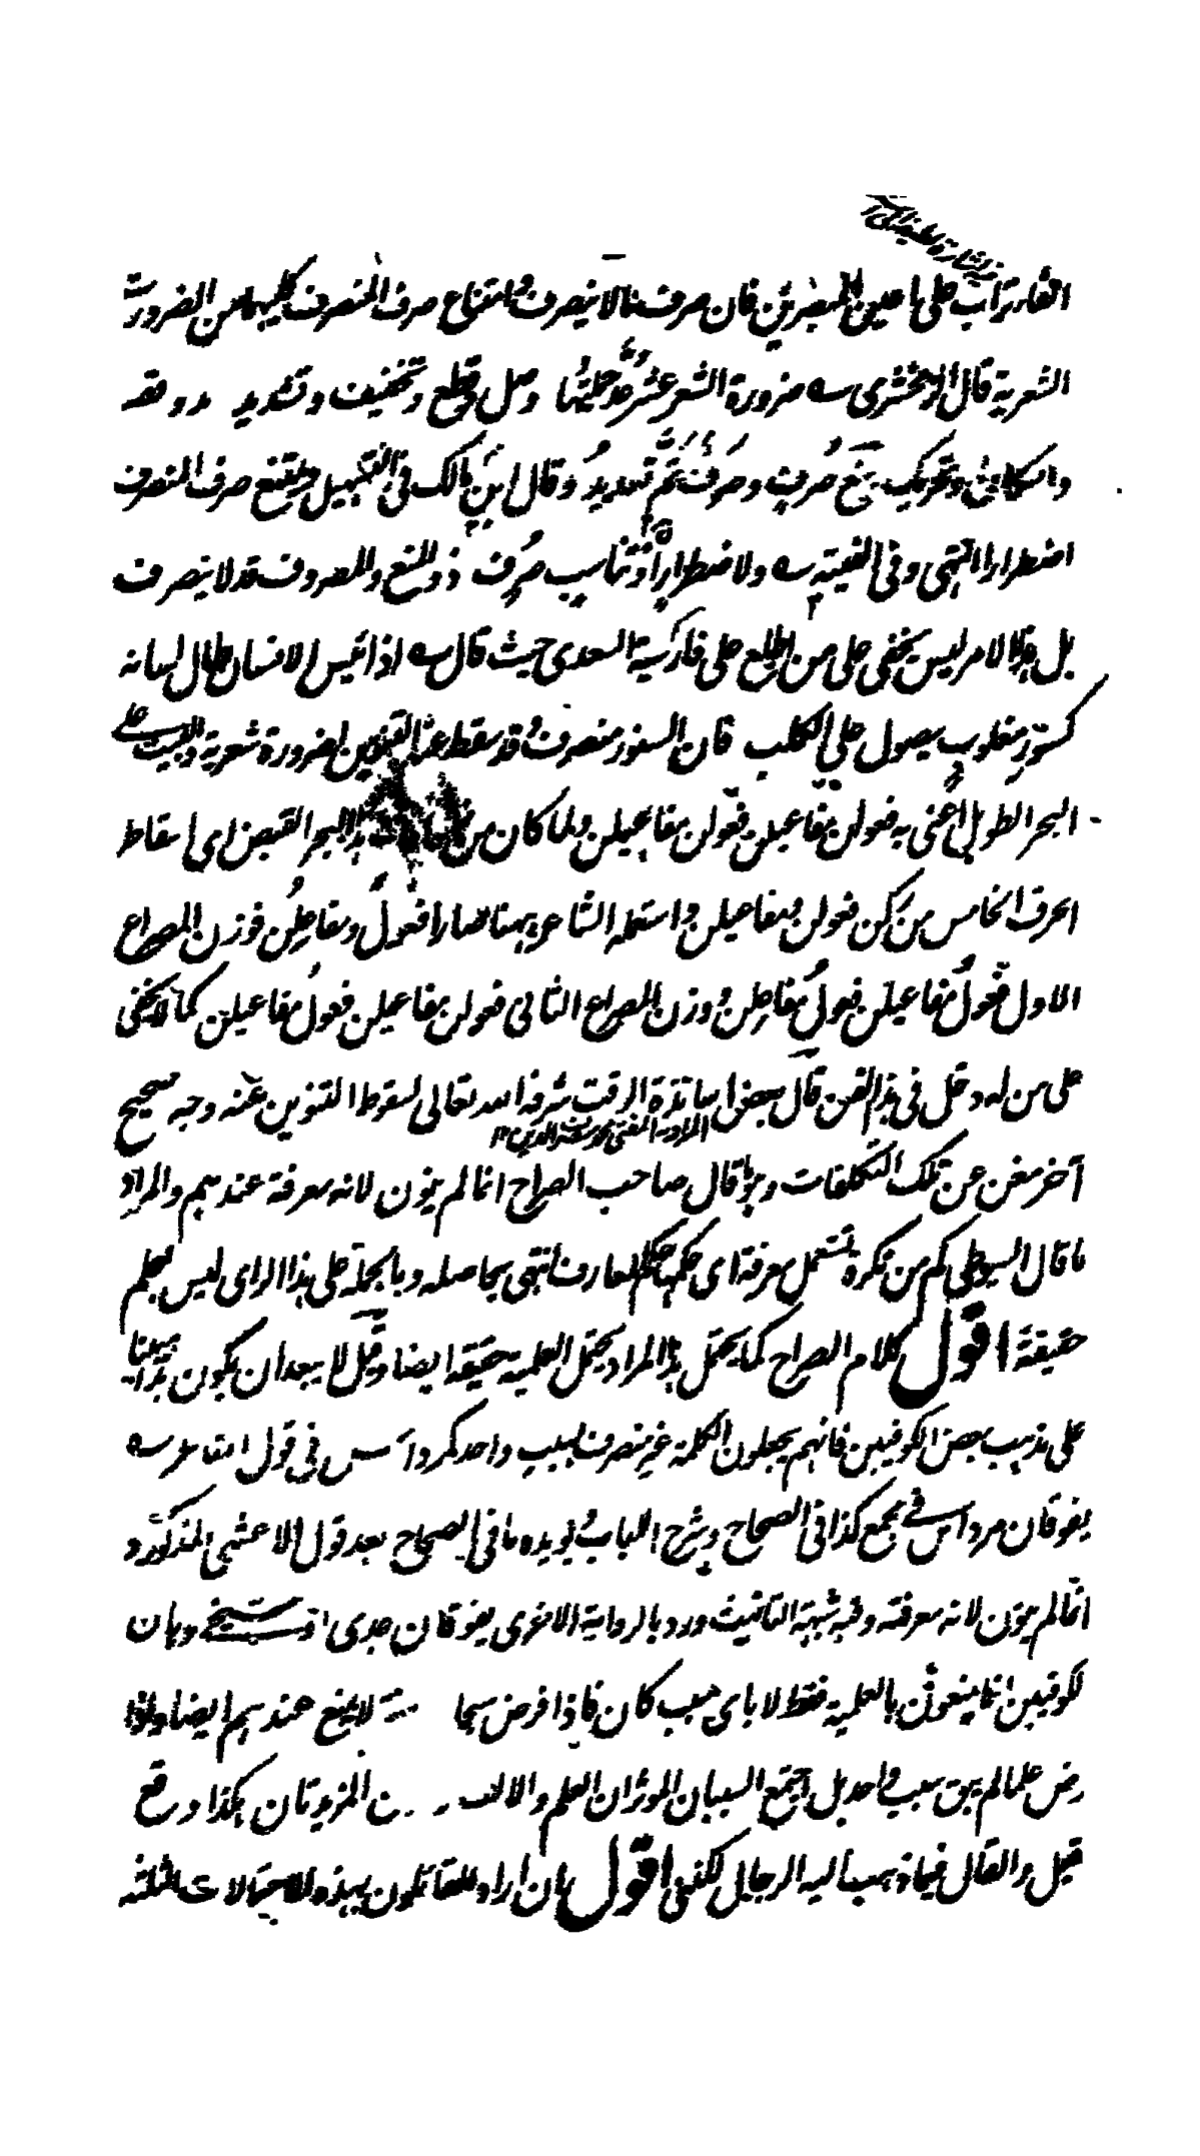 فيه اشارة لطيفة الى
الفارتراب على اعين المبصرين فان صرف ما لا ينصرف وامتناع صرف المنصرف كليهما من الضرورت
الشعرية قال الزمخشرى ضرورة الشعر عشر عد جملتها وصل وقطع وتخفيف وتشديد مد وقصر
واسكان وتحريك ومنع صرف وصرف تم تعديد وقال ابن مالك فى التسهيل ويمتنع صرف المنصرف
اضطرارا انتهى وفى الفيته ولاضطرار او تناسب صرف ذو المنع والمصروف قد لا ينصرف
بل هذا الامر ليس يخفى على من اطلع على فارسية السعدى حيث قال اذا ايس الانسان طال لسانه
كسنور مغلوب يصول على الكلب فان السنور منصرف وقد سقط عنه التنوين لضرورة شعرية والبيت على
البحر الطويل اعنى به فعولن مفاعيلن فعولن مفاعيلن ولما كان من هذا البحر القبض اى اسقاط
الحرف الخامس من ركن فعولن ومفاعيلن واستعمله الشاعر ههنا صارا فعول ومفاعلن فوزن المصراع
الاول فعول مفاعيلن فعول مفاعلن ووزن المصراع الثانى فعولن مفاعيلن فعول مفاعيلن كما لا يخفى
على من له دخل فى هذا الفن قال بعض اساتذة الوقت شرفه الله تعالى لسقوط التنوين عنه وجه صحيح
المراد به المفتى محمد سعد الدين ١٢
آخر مغن عن تلك التكلفات وهو ما قال صاحب الصراح انما لم ينون لانه معرفة عندهم والمراد
ما قال السيوطى كم من نكرة تستعمل معرفة اى حكمها حكم المعارف انتهى بحاصله وبالجملة على هذا الراى ليس بعلم
حقيقة اقول كلام الصراح كما يحتمل هذا المراد يحتمل العلمية حقيقة ايضا وقيل لا يبعدان يكون هذا مبنيا
على مذهب بعض الكوفيين فانهم يجعلون الكلمة غير منصرف بسبب واحد كمرداس فى قول الشاعر
يفوقان مرداس فى مجمع كذا فى الصحاح وشرح اللباب ويؤيده ما فى الصحاح بعد قول الاعشى المذكور
انما لم ينون لانه معرفة وفيه شبهة التانيث ورد بالرواية الاخرى يفوقان جدى او شيخى وبان
لكوفيين انما يمنعون بالعلمية فقط لا باى سبب كان فاذا فرض لا يمتنع عندهم ايضا واذا
رض علما لم يبق سبب واحد بل اجتمع السببان الموثران العلم والالف ن المزيدتان هكذا وقع
قيل والقال فيما ذهب اليه الرجال لكننى اقول بان اراد القائلون بهذه الاحتمالات الثلثة